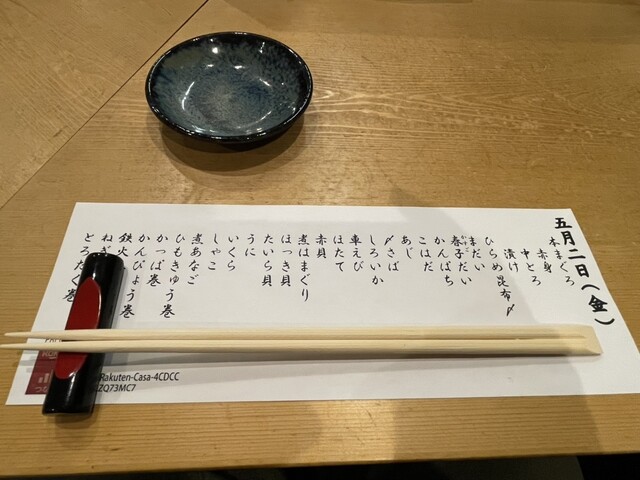 五月二日(金)
本まぐろ
赤身
中とろ
漬け
ひらめ昆布〆
まだい
春子だい
かすご
かんぱち
こはだ
あじ
〆さば
しろいか
車えび
ほたて
赤貝
煮はまぐり
ほっき貝
たいら貝
うに
いくら
しゃこ
煮あなご
ひもきゅう巻
かっぱ巻
かんぴょう巻
鉄火巻
とろたく巻
Rakuten-Casa-4CDCC
ZQ73MC7